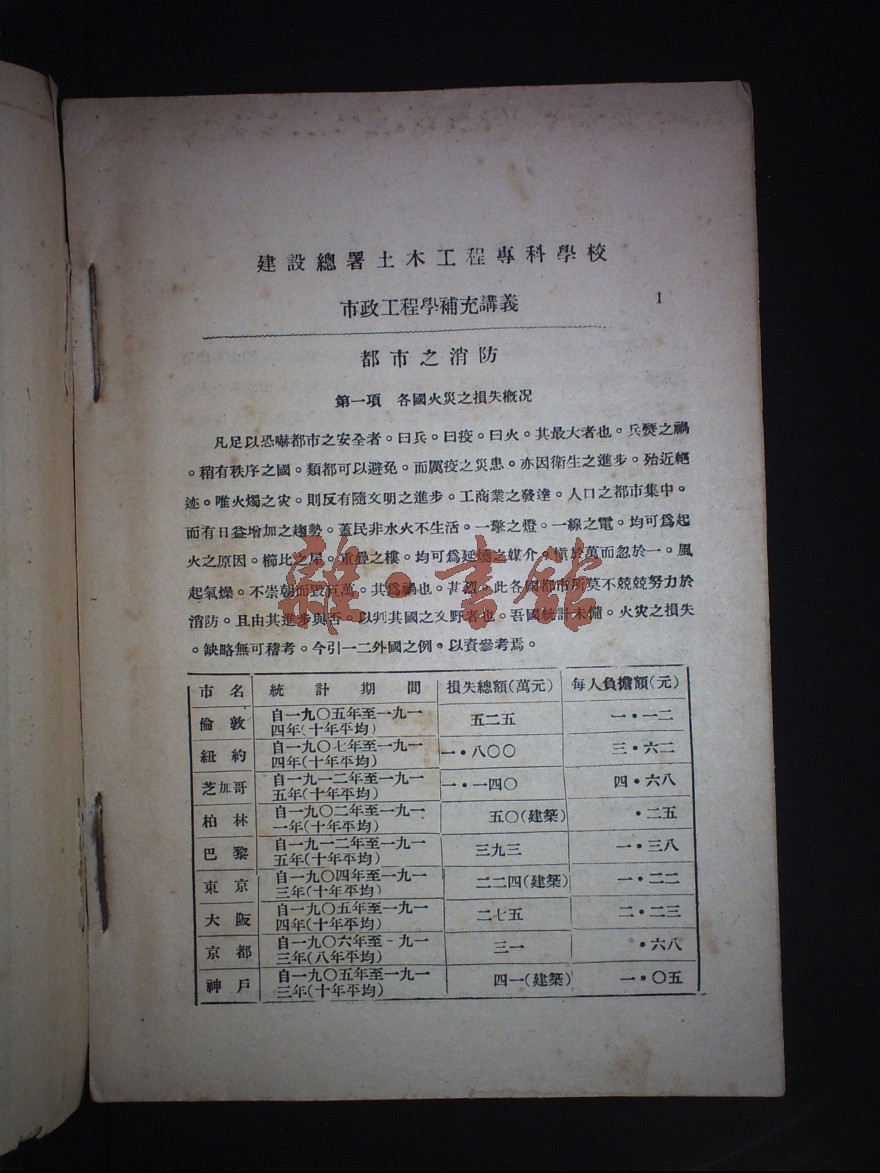 建設總署土木工程專科學校
市政工程學補充講義
1
都市之消防
第一項 各國火災之損失概况
凡足以恐嚇都市之安全者。曰兵。曰疫。曰火。其最大者也。兵燹之禍
。稍有秩序之國。類都可以避免。而厲疫之災患。亦因衛生之進步。殆近絕
迹。唯火燭之灾。則反有隨文明之進步。工商業之發達。人口之都市集中。
而有日益增加之趨勢。蓋民非水火不生活。一擎之燈。一線之電。均可爲起
火之原因。櫛比之屋。重疊之樓。均可爲延燒之媒介。愼於萬而忽於一。風
起氣燥。不崇朝而毀巨萬。其爲禍也。甚烈。此各國都市所莫不兢兢努力於
消防。且由其進步與否。以判其國之文野者也。吾國統計未備。火灾之損失
。缺略無可稽考。今引一二外國之例。以資參考焉。
市名 統計期間 損失總額(萬元) 每人負擔額(元)
倫敦 自一九〇五年至一九一四年(十年平均) 五二五 一・一二
紐約 自一九〇七年至一九一四年(十年平均) 一・八〇〇 三・六二
芝加哥 自一九一二年至一九一五年(十年平均) 一・一四〇 四・六八
柏林 自一九〇二年至一九一一年(十年平均) 五〇(建築) ・二五
巴黎 自一九一二年至一九一五年(十年平均) 三九三 一・三八
東京 自一九〇四年至一九一三年(十年平均) 二二四(建築) 一・二二
大阪 自一九〇五年至一九一四年(十年平均) 二七五 二・二三
京都 自一九〇六年至一九一三年(八年平均) 三一 ・六八
神戶 自一九〇五年至一九一三年(十年平均) 四一(建築) 一・〇五
雜・書館